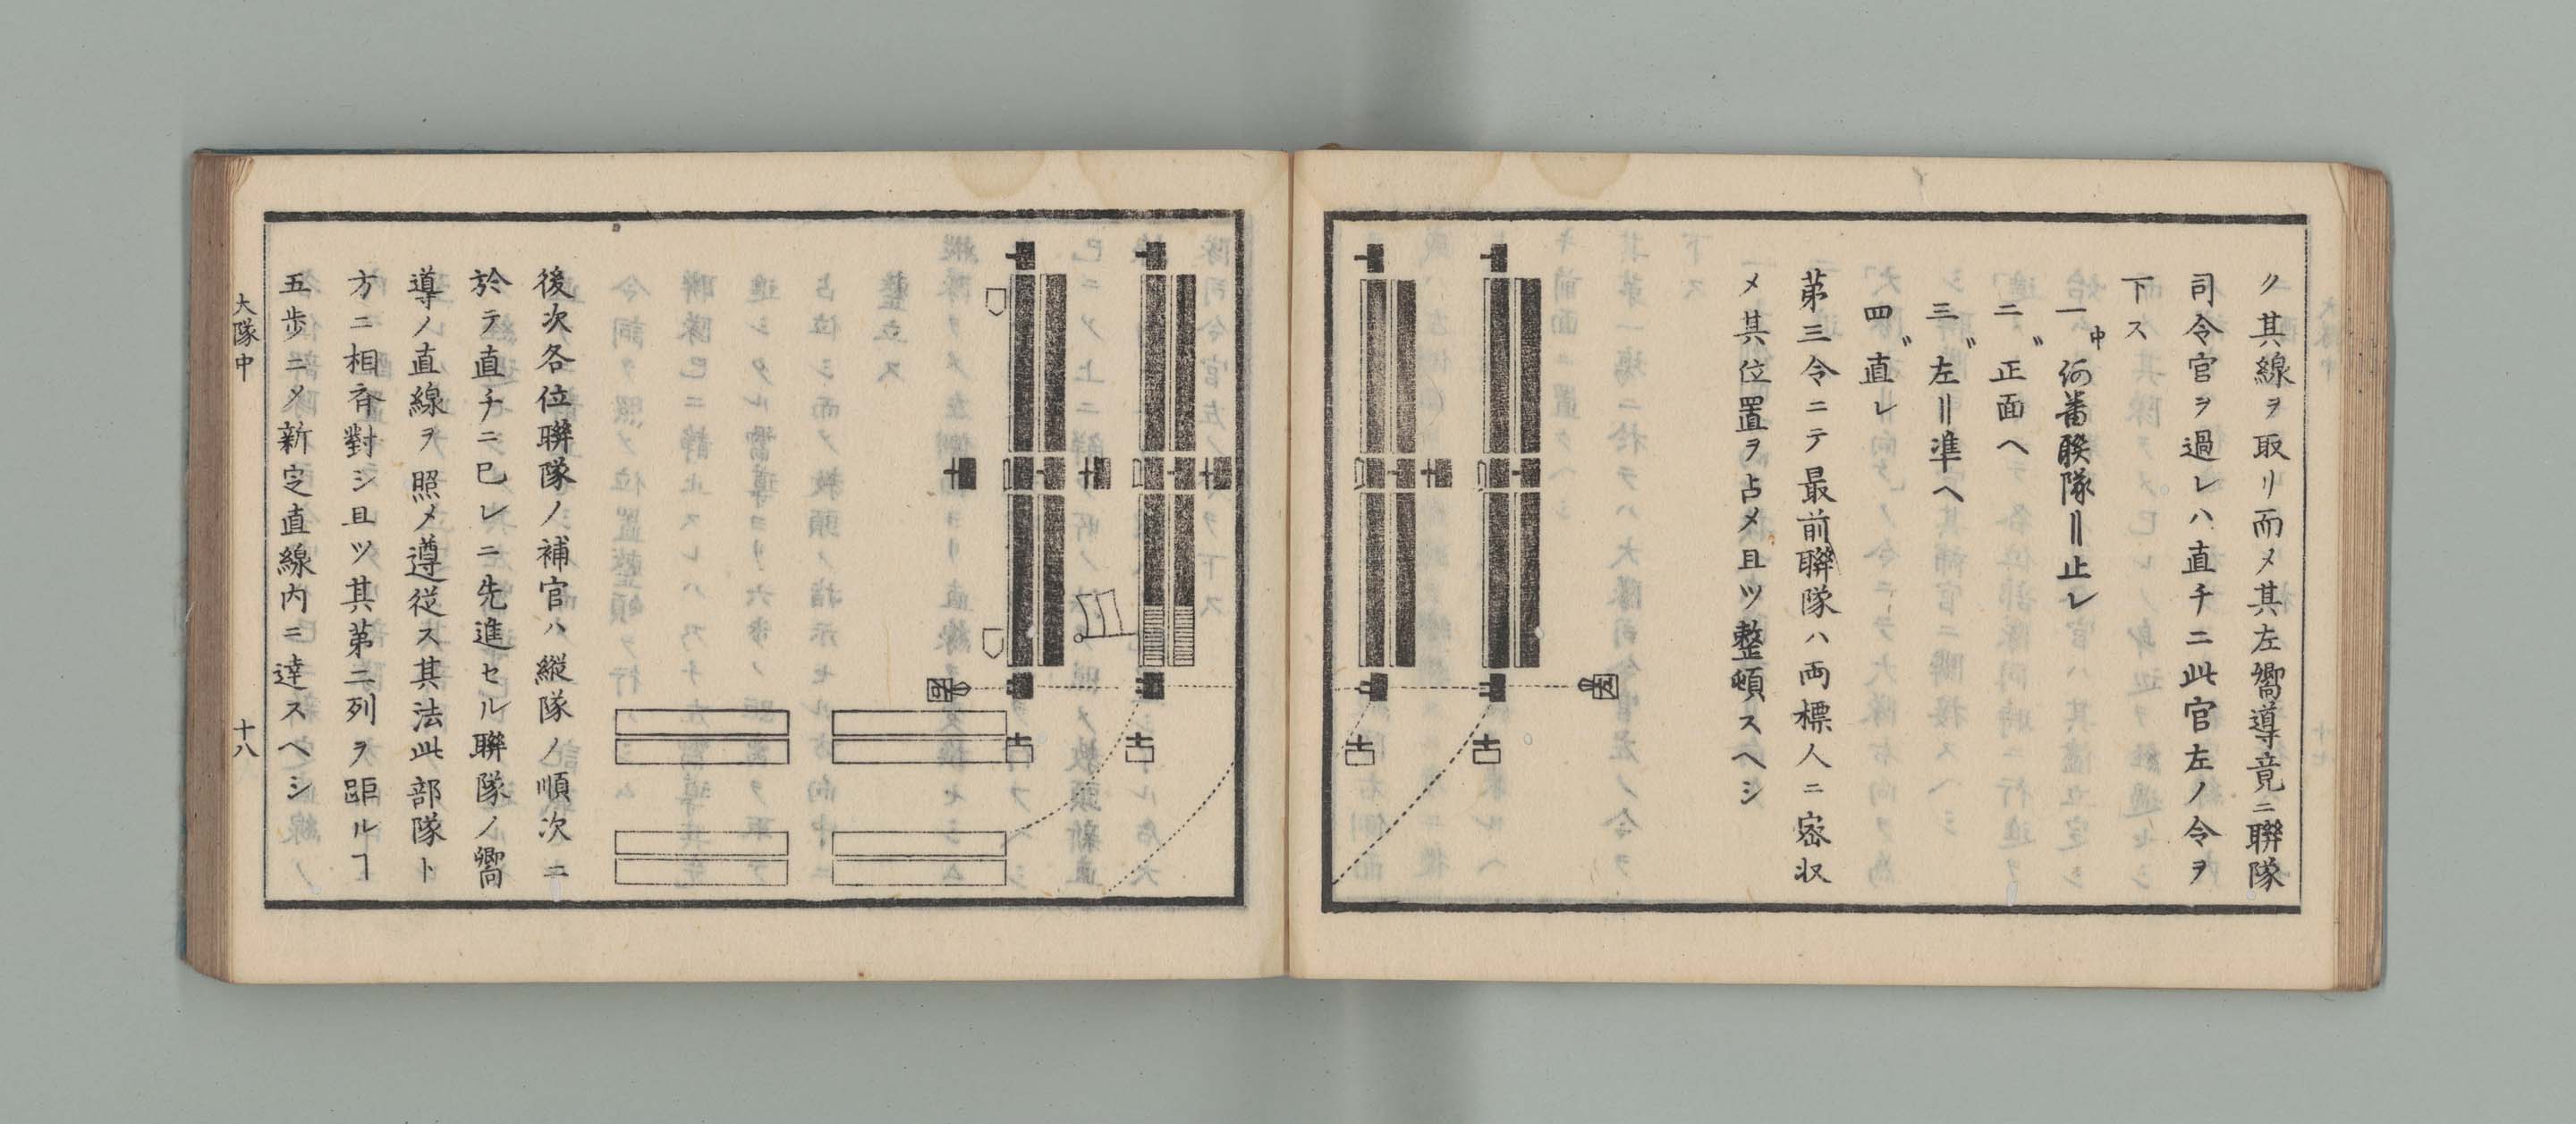 ク其線ヲ取リ而〆其左嚮導竟ニ聯隊
司令官ヲ過レハ直チニ此官左ノ令ヲ
下ス
一中 何番聯隊‖止レ
二〃 正面ヘ
三〃 左‖準ヘ
四〃 直レ
第三令ニテ最前聯隊ハ両標人ニ密収
〆其位置ヲ占〆且ツ整頓スヘシ
後次各位聯隊ノ補官ハ縦隊ノ順次ニ
於テ直チニ已レニ先進セル聯隊ノ嚮
導ノ直線ヲ照〆遵従ス其法此部隊ト
方ニ相斉對シ且ツ其第二列ヲ距ルヿ
五歩ニ〆新定直線内ニ達スヘシ
大隊中
十八